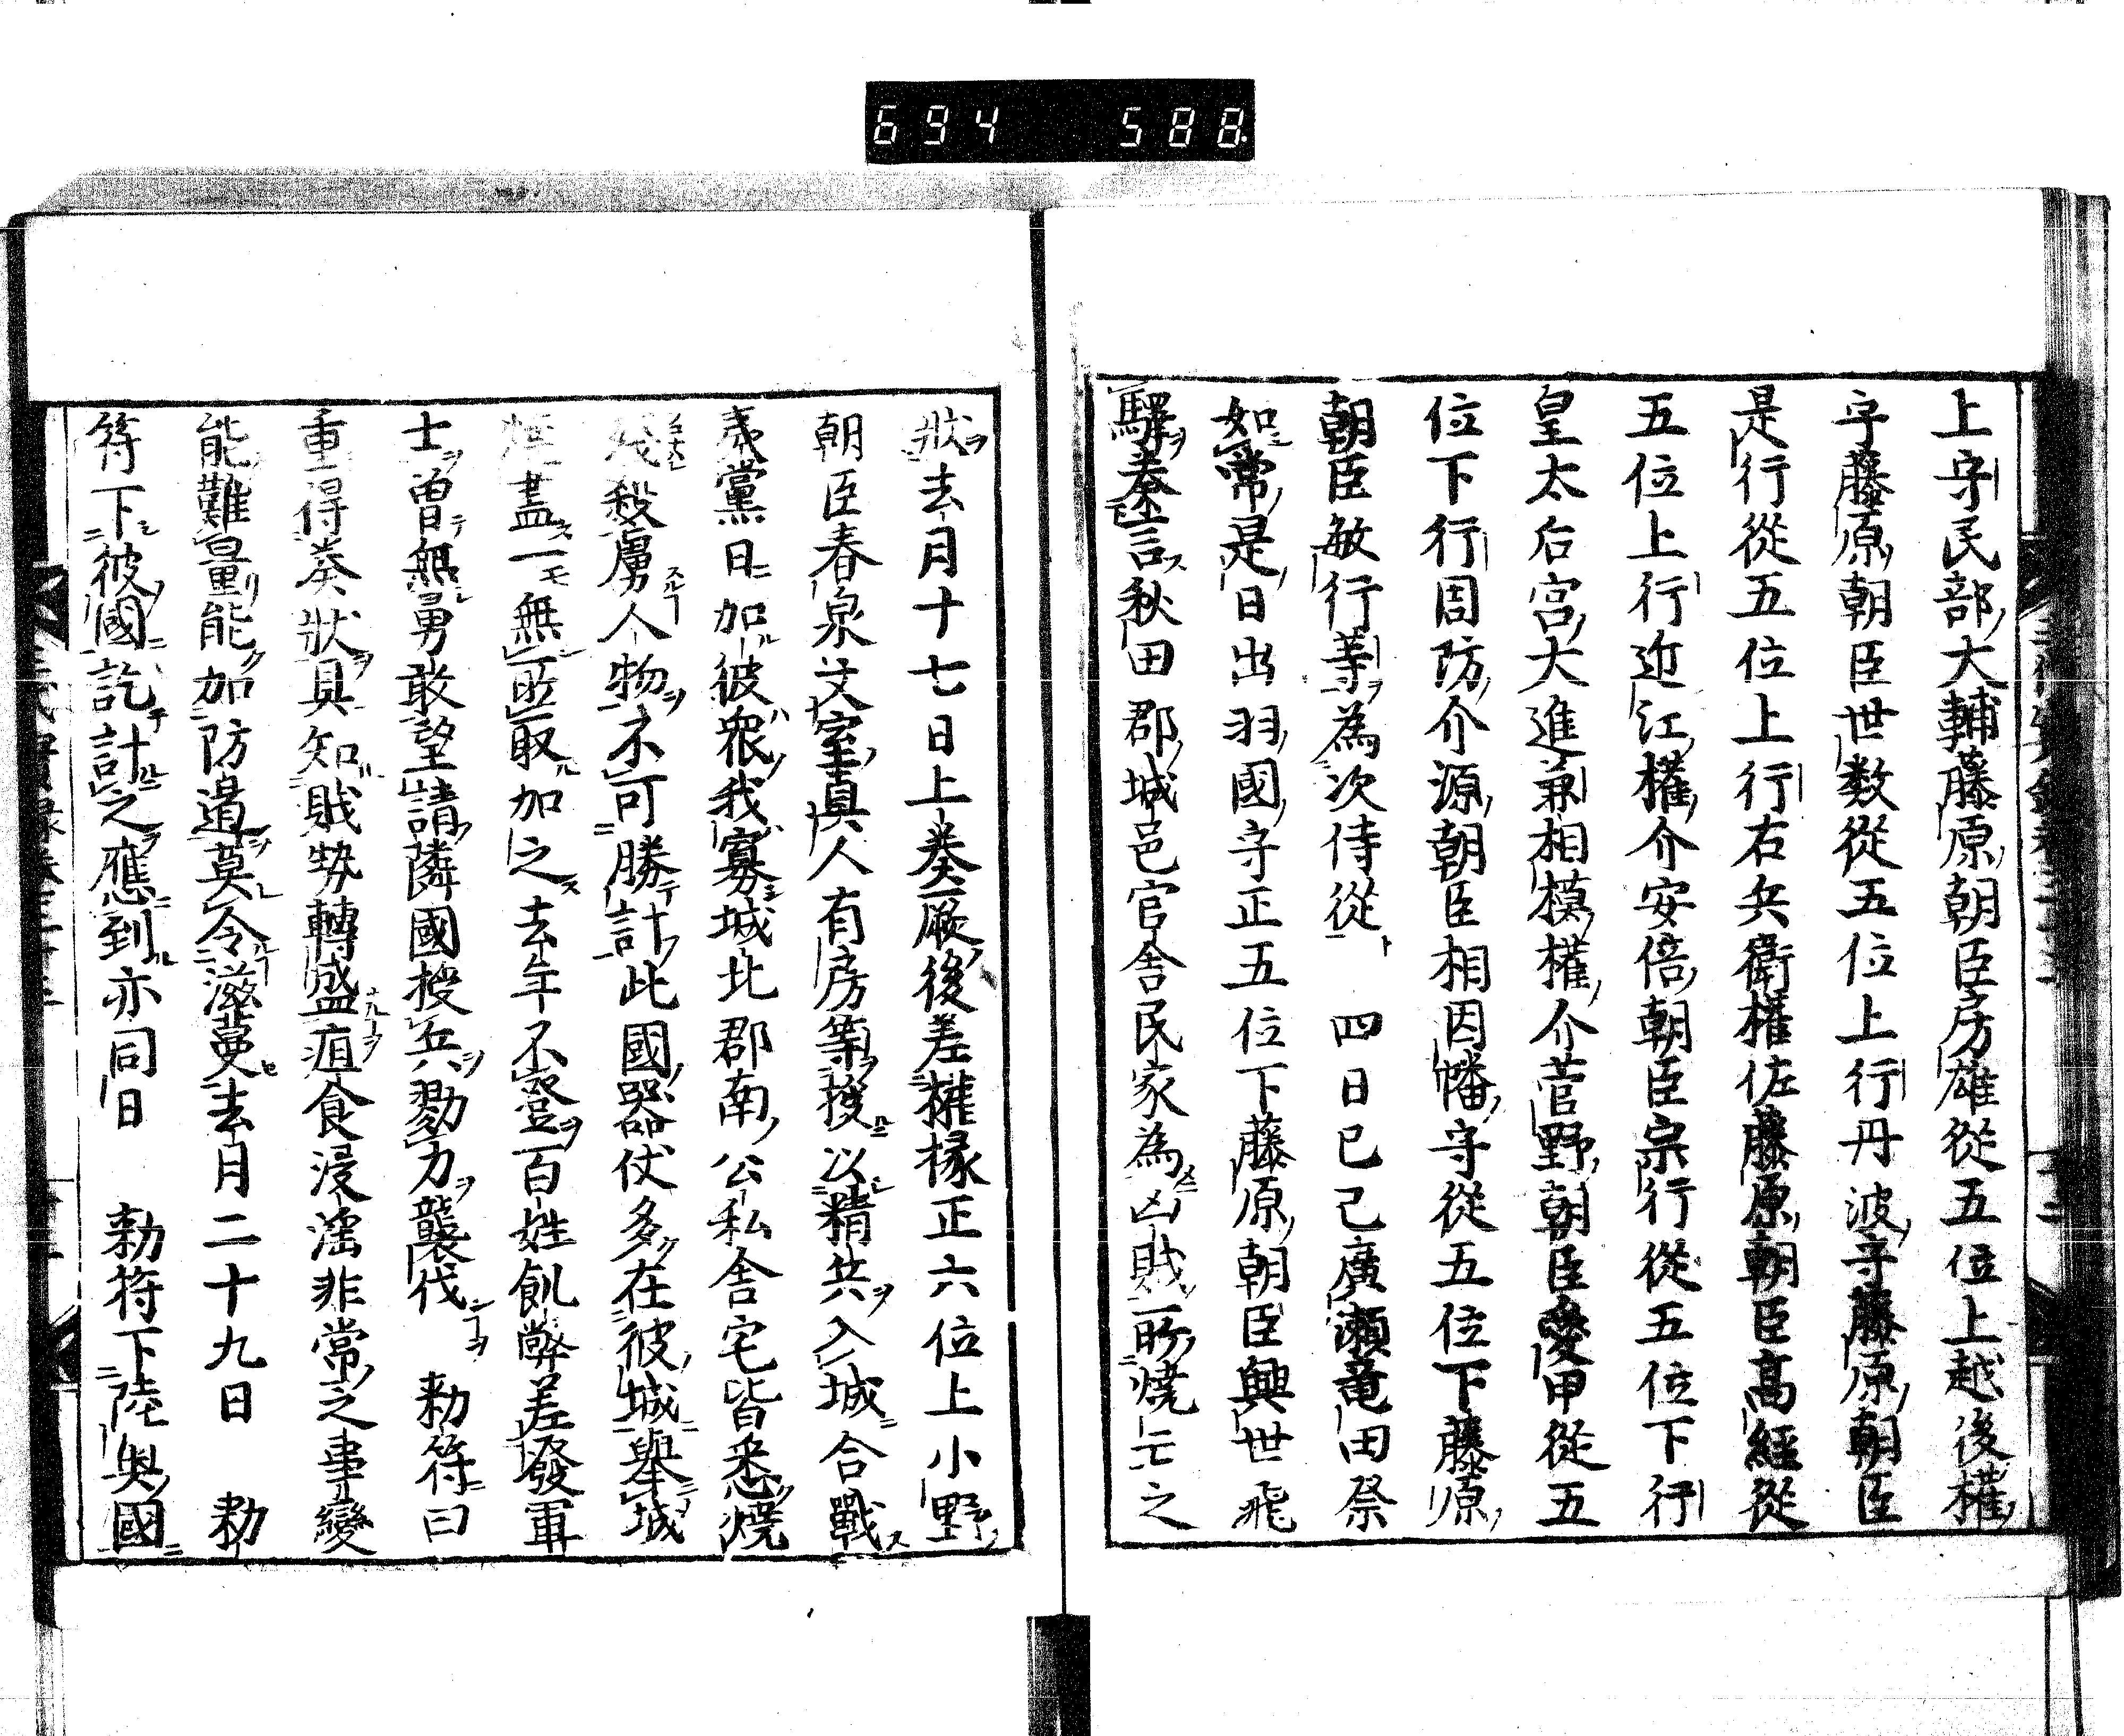 694 588
上守民部大輔藤原朝臣房雄從五位上越後權
守藤原朝臣世数從五位上行丹波守藤原朝臣
是行從五位上行右兵衛權佐藤原朝臣髙經從
五位上行近江權介安倍朝臣宗行從五位下行
皇太后宮大進兼相模權介菅野朝臣愛甲從五
位下行周防介源朝臣相因幡守從五位下藤原
朝臣敏行等為次侍從 四日已己廣瀬竜田祭
如常是日出羽國守正五位下藤原朝臣興世飛
驛奏言秋田郡城邑官舎民家為凶賊所燒亡之
狀去月十七日上奏厥後差權掾正六位上小野
朝臣春泉文室真人有房等授以精兵入城合戰
夷黨日加彼衆我寡城北郡南公私舎宅皆悉燒
殘殺虜人物不可勝計此國器仗多在彼城舉城
燒盡一無匝取加之去年不登百姓飢弊差發軍
士曽無勇敢望請隣國援兵勠力襲伐 勅符曰
重得奏狀具知賊勢轉盛疽食浸淫非常之事變
能難量能加防邉莫令滋蔓去月二十九日 勅
符下彼國訖計之應到亦同日 勅符下陸奥國